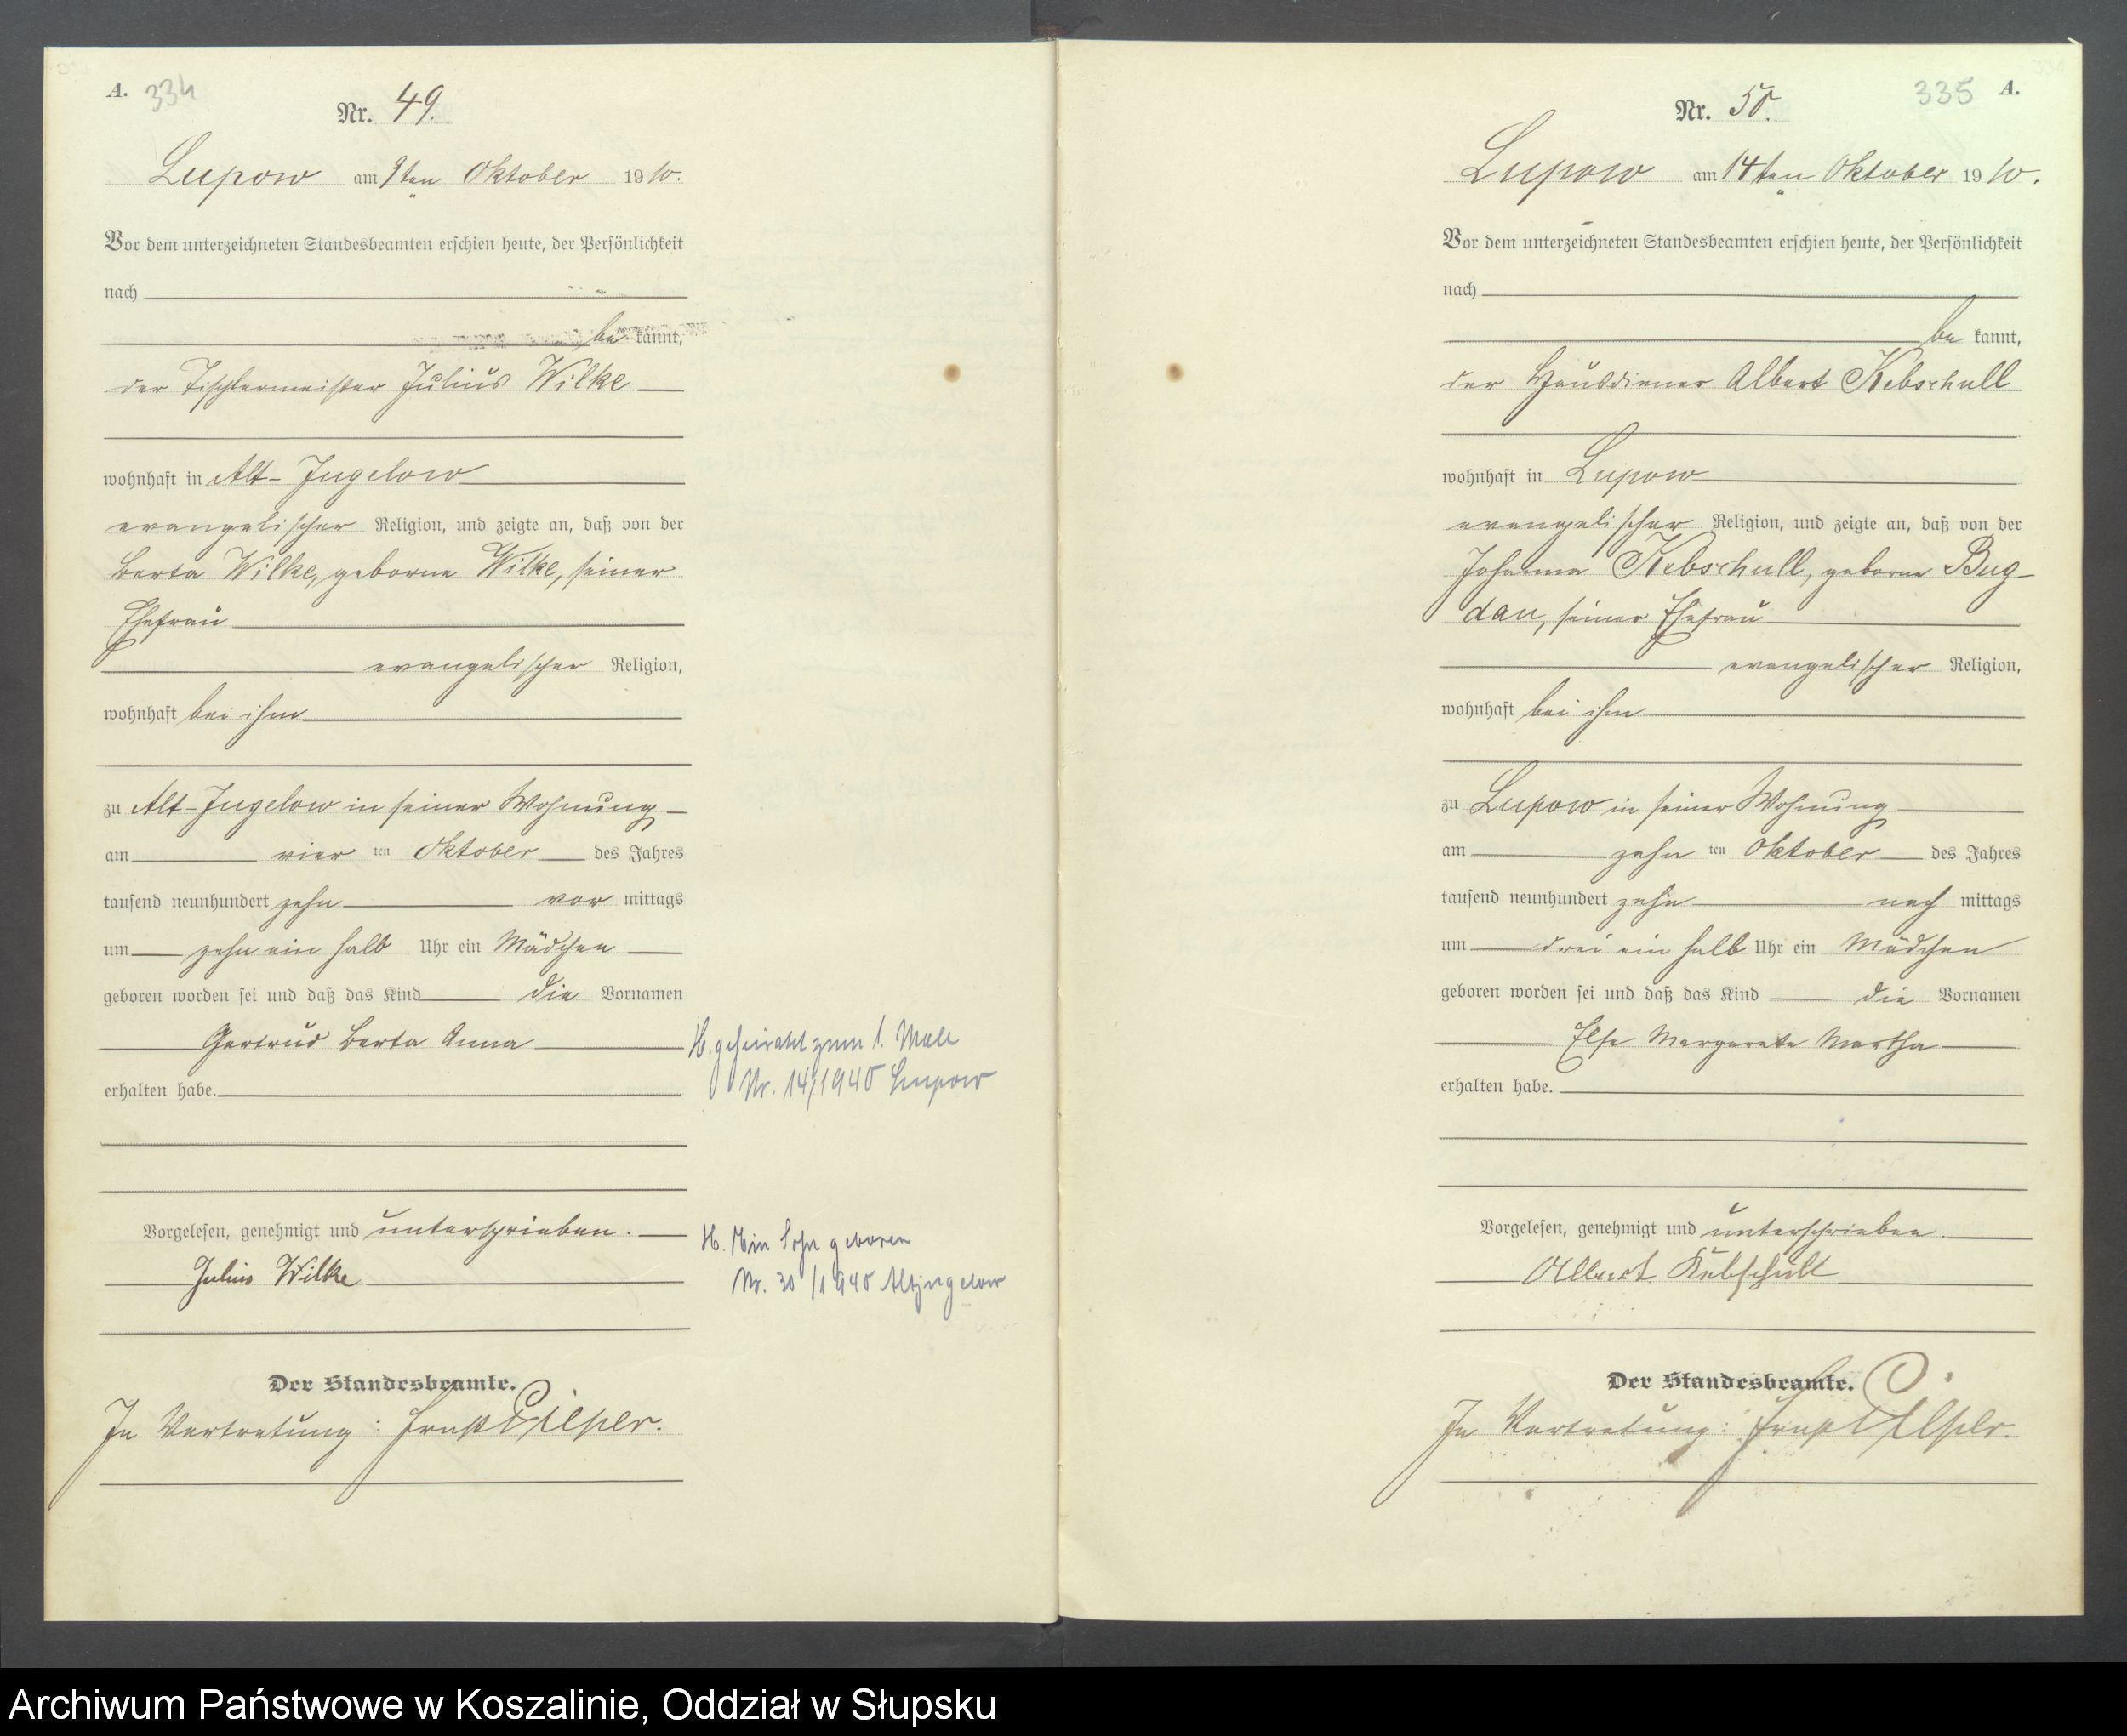 A. 334
Nr. 49.
Lupow am 9ten Oktober 1910.
Vor dem unterzeichneten Standesbeamten erschien heute, der Persönlichkeit
nach
be kannt,
der Tischlermeister Julius Wilke
wohnhaft in Alt-Jugelow
evangelischer Religion, und zeigte an, daß von der
Berta Wilke, geborne Wilke, seiner
Ehefrau
evangelischer Religion,
wohnhaft bei ihm
zu Alt-Jugelow in seiner Wohnung
am vier ten Oktober des Jahres
tausend neunhundert zehn vor mittags
um zehn ein halb Uhr ein Mädchen
geboren worden sei und daß das Kind die Vornamen
Gertrud Berta Anna
erhalten habe.
H. geheiratet zum 1. Male
Nr. 14/1940 Lupow
Vorgelesen, genehmigt und unterschrieben.
Julius Wilke
H. Sohn geboren
Nr. 30/1940 Altjugelow
Der Standesbeamte.
In Vertretung: Ernst
335 A.
Nr. 50.
Lupow am 14ten Oktober 1910.
Vor dem unterzeichneten Standesbeamten erschien heute, der Persönlichkeit
nach
be kannt,
der Hausdiener Albert Kebschull
wohnhaft in Lupow
evangelischer Religion, und zeigte an, daß von der
Johanna Kebschull, geborne Bug-
dau, seiner Ehefrau
evangelischer Religion,
wohnhaft bei ihm
zu Lupow in seiner Wohnung
am zehn ten Oktober des Jahres
tausend neunhundert zehn nach mittags
um drei ein halb Uhr ein Mädchen
geboren worden sei und daß das Kind die Vornamen
Else Margarete Martha
erhalten habe.
Vorgelesen, genehmigt und unterschrieben.
Albert Kebschull
Der Standesbeamte.
In Vertretung: Ernst
Archiwum Państwowe w Koszalinie, Oddział w Słupsku